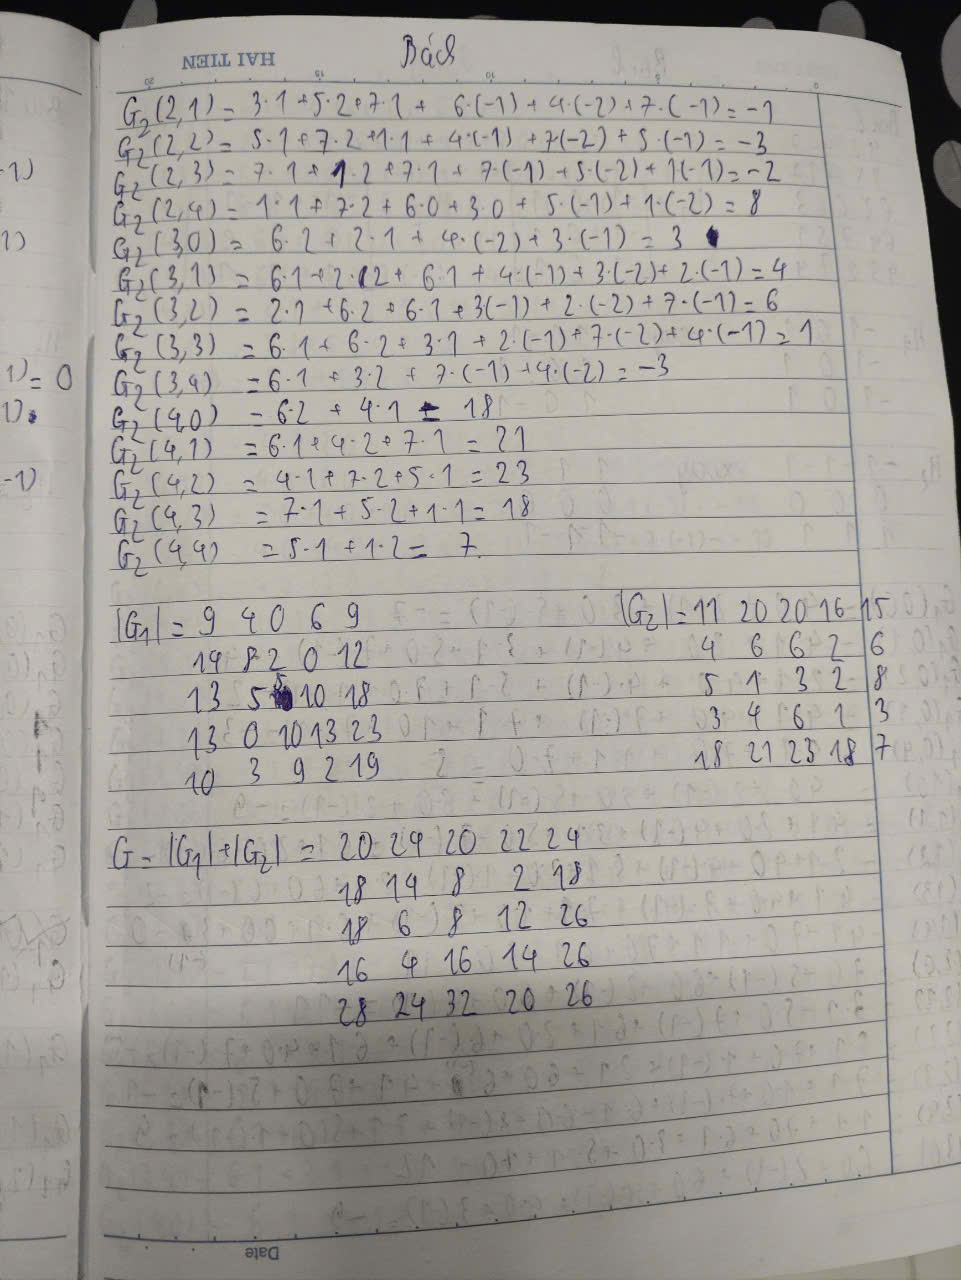 HAI TIEN
Bách
G₂(2,1) = 3·1 + 5·2 + 7·1 + 6·(-1) + 4·(-2) + 7·(-1) = -1
G₂(2,2) = 5·1 + 7·2 + 1·1 + 4·(-1) + 7(-2) + 5·(-1) = -3
G₂(2,3) = 7·1 + 1·2 + 7·1 + 7·(-1) + 5·(-2) + 1(-1) = -2
G₂(2,4) = 1·1 + 7·2 + 6·0 + 3·0 + 5·(-1) + 1·(-2) = 8
G₂(3,0) = 6·2 + 2·1 + 4·(-2) + 3·(-1) = 3
G₂(3,1) = 6·1 + 2·2 + 6·1 + 4·(-1) + 3·(-2) + 2·(-1) = 4
G₂(3,2) = 2·1 + 6·2 + 6·1 + 3(-1) + 2·(-2) + 7·(-1) = 6
G₂(3,3) = 6·1 + 6·2 + 3·1 + 2·(-1) + 7·(-2) + 4·(-1) = 1
G₂(3,4) = 6·1 + 3·2 + 7·(-1) + 4·(-2) = -3
G₂(4,0) = 6·2 + 4·1 = 18
G₂(4,1) = 6·1 + 4·2 + 7·1 = 21
G₂(4,2) = 4·1 + 7·2 + 5·1 = 23
G₂(4,3) = 7·1 + 5·2 + 1·1 = 18
G₂(4,4) = 5·1 + 1·2 = 7.
|G₁| = 9 4 0 6 9 |G₂| = 11 20 20 16 15
14 8 2 0 12 4 6 6 2 6
13 5 5 10 18 5 1 3 2 8
13 0 10 13 23 3 4 6 1 3
10 3 9 2 19 18 21 23 18 7
G = |G₁| + |G₂| = 20 24 20 22 24
18 14 8 2 18
18 6 8 12 26
16 4 16 14 26
28 24 32 20 26
Date
-1)
1)
1) = 0
1)
-1)